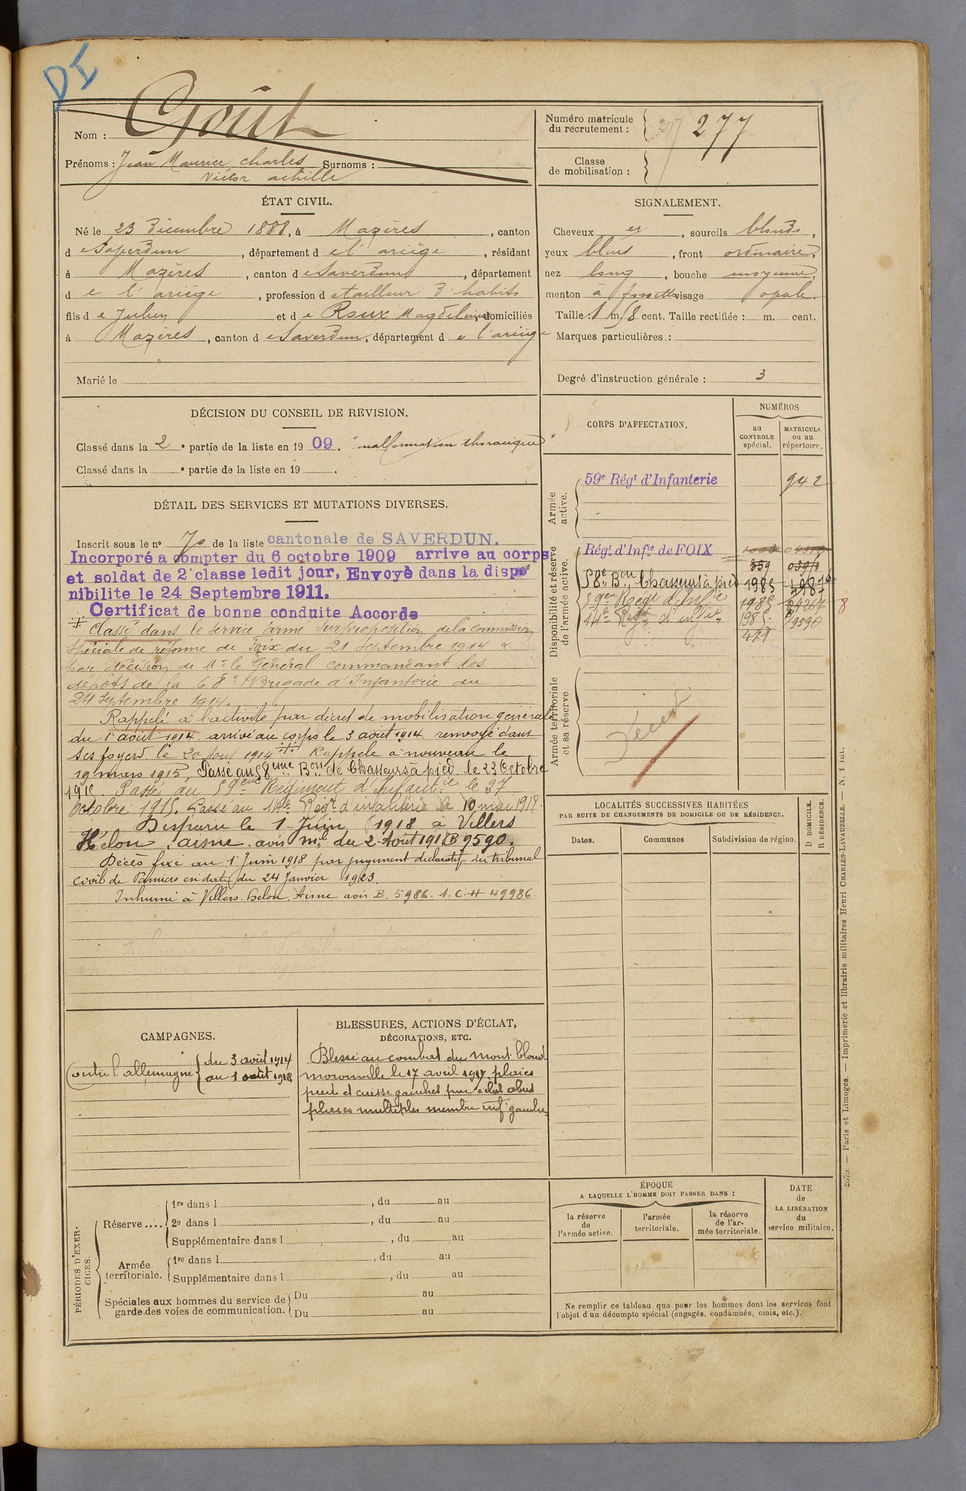 DI
Goût
Nom :
Prénoms : Jean Maurice, Charles Surnoms :
Victor achille
Numéro matricule
du recrutement : 277
Classe
de mobilisation :
ÉTAT CIVIL.
Né le 23 Décembre 1888, à Mazères, canton
de Saverdun, département de l'ariège, résidant
à Mazères, canton de Saverdun, département
de l'ariège, profession de tailleur d'habits
fils de Julien et de Roux Magdelaine, domiciliés
à Mazères, canton de Saverdun, département de l'ariège
Marié le
SIGNALEMENT.
Cheveux et, sourcils blonds,
yeux bleus, front ordinaire,
nez long, bouche moyenne,
menton à fossette visage opale.
Taille : 1 m. 58 cent. Taille rectifiée : m. cent.
Marques particulières :
Degré d'instruction générale : 3
DÉCISION DU CONSEIL DE REVISION.
Classé dans la 2e partie de la liste en 1909. "malformation thoracique"
Classé dans la e partie de la liste en 19 .
DÉTAIL DES SERVICES ET MUTATIONS DIVERSES.
Inscrit sous le no 70 de la liste cantonale de SAVERDUN.
Incorporé a compter du 6 octobre 1909 arrive au corps
et soldat de 2e classe ledit jour, Envoyé dans la dispo
nibilite le 24 Septembre 1911.
Certificat de bonne conduite Accorde
Classé dans le service armé sur proposition de la commission
spéciale de réforme de Foix du 21 Septembre 1914 &
par décision de Mr le Général commandant les
dépôts de la 68e Brigade d'Infanterie du
24 Septembre 1914.
Rappelé à l'activité par décret de mobilisation générale
du 1er août 1914. arrivé au corps le 3 août 1914 renvoyé dans
ses foyers le 20 août 1914 Rappelé à nouveau le
19 mars 1915, Passé au 58eme Bon de Chasseurs à pied le 23 Octobre
1916. Passé au 59eme Régiment d'Infantie le 27
Octobre 1915. Passé au 14e Régt d'infanterie le 10 mai 1918.
Disparu le 1 Juin 1918 à Villers
Hélon, aisne, avis ml du 2 Août 1918 B 9590.
Décès fixé au 1 Juin 1918 par jugement déclaratif du tribunal
civil de Pamiers en date du 24 Janvier 1923.
Inhumé à Villers Helon, Aisne avis B. 5986. S.C.H 49986
CORPS D'AFFECTATION.
NUMÉROS
au
CONTROLE
spécial.
MATRICULE
ou au
répertoire.
Armée
active.
59e Régt d'Infanterie 942
Disponibilité et réserve
de l'armée active.
Régt d'Infie de FOIX
859
58e Bon Chasseurs à pied 1985
59eme Régt d'Infie 1985
14e Regt d'infie 1985
421 9590
8
Armée territoriale
et sa réserve
Décédé
LOCALITÉS SUCCESSIVES HABITÉES
PAR SUITE DE CHANGEMENTS DE DOMICILE OU DE RÉSIDENCE.
Dates.
Communes
Subdivision de région.
D DOMICILE.
R RÉSIDENCE.
CAMPAGNES.
Contre l'allemagne du 3 août 1914
au 1 août 1918
BLESSURES, ACTIONS D'ÉCLAT,
DÉCORATIONS, ETC.
Blessé au combat du mont blond
moronville le 17 avril 1917 plaies
pied et cuisse gauches par éclat obus
plaies multiples membre inf gauche
PÉRIODES D'EXERCICES.
Réserve....
1re dans l , du au
2e dans l , du au
Supplémentaire dans l , du au
Armée
territoriale.
1re dans l , du au
Supplémentaire dans l , du au
Spéciales aux hommes du service de
garde des voies de communication.
Du au
Du au
ÉPOQUE
A LAQUELLE L'HOMME DOIT PASSER DANS :
la réserve
de
l'armée active.
l'armée
territoriale.
la réserve
de l'ar-
mée territoriale.
DATE
de
LA LIBÉRATION
du
service militaire.
Ne remplir ce tableau que pour les hommes dont les services font
l'objet d'un décompte spécial (engagés, condamnés, omis, etc.).
Paris et Limoges. — Imprimerie et librairie militaires Henri CHARLES-LAVAUZELLE. — N. 1 int.